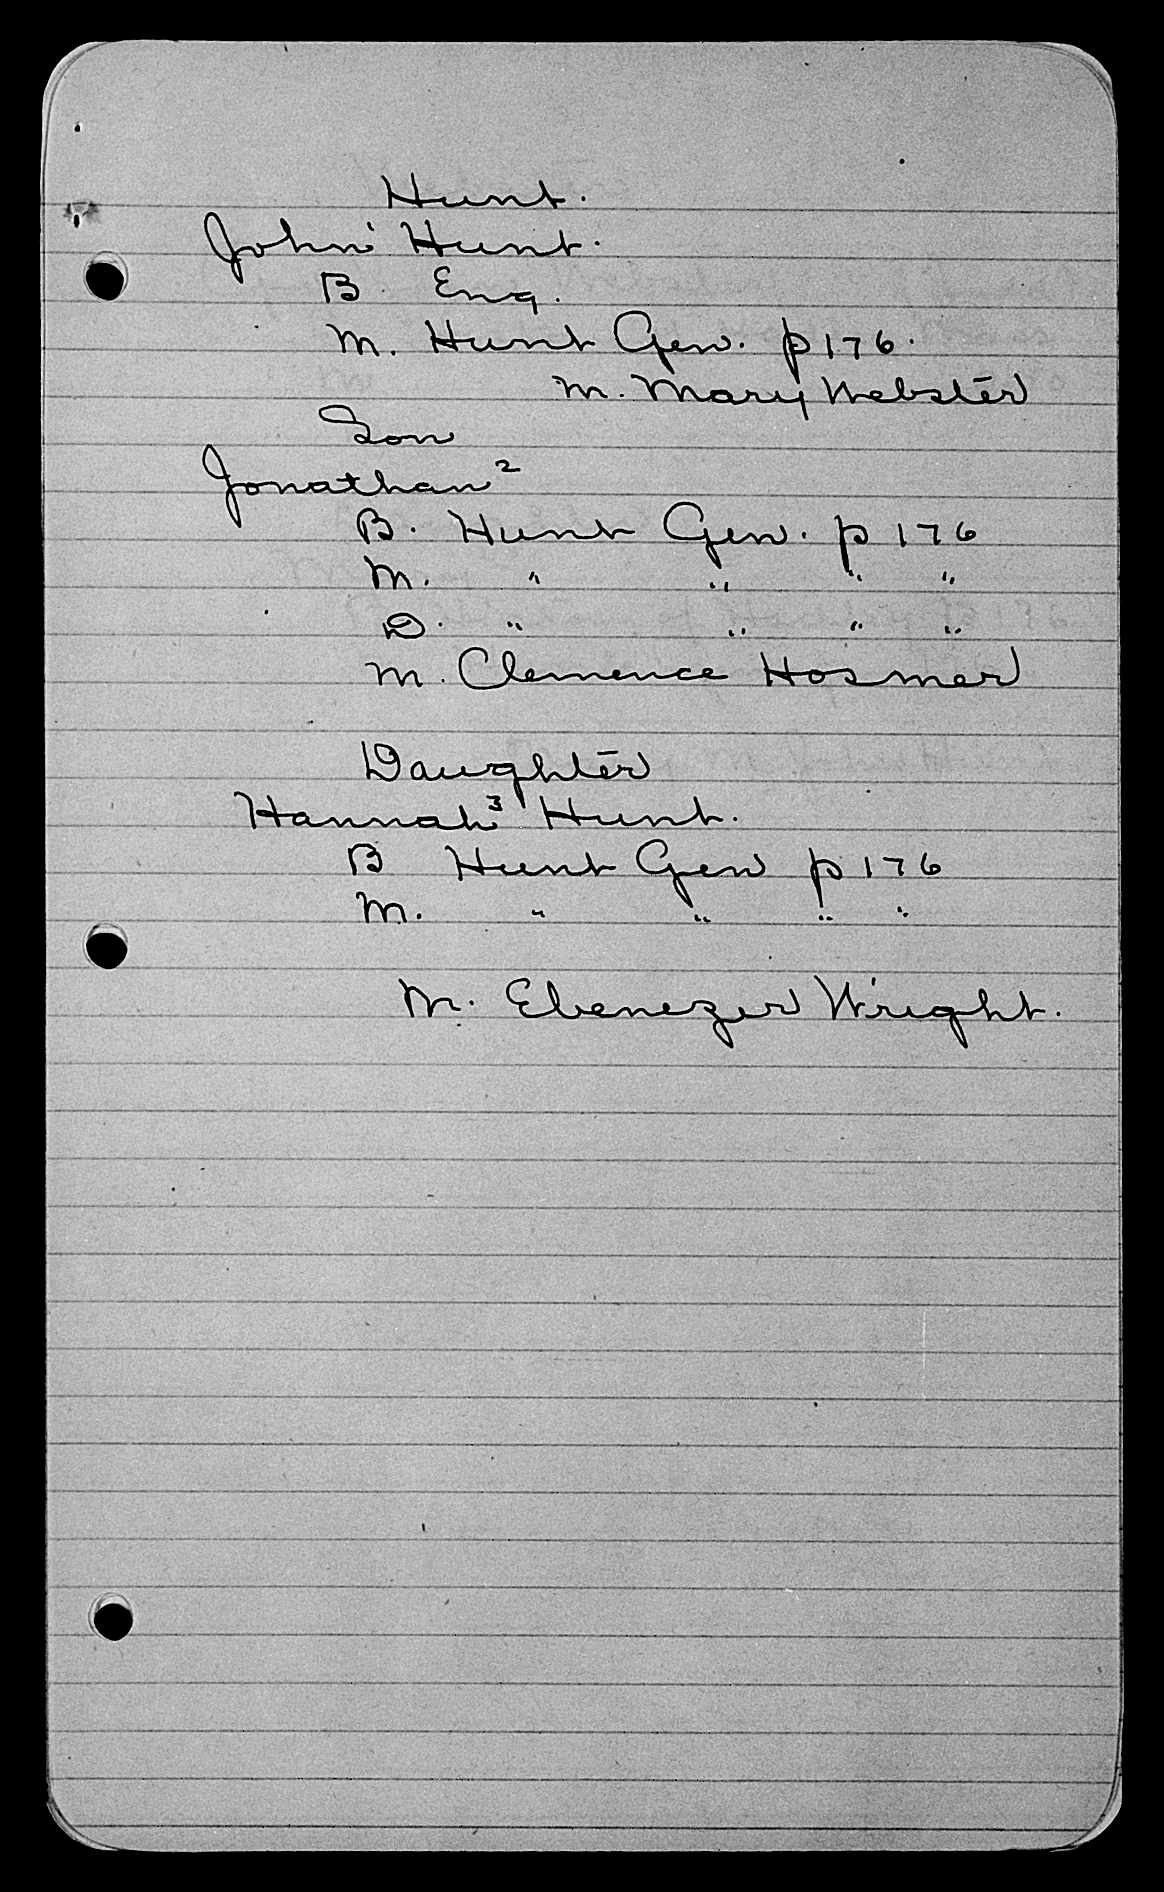 Hunt.
John¹ Hunt.
B. Eng.
M. Hunt Gen. p 176.
M. Mary Webster
Son
Jonathan²
B. Hunt Gen. p 176
M. " " " "
D. " " " "
M. Clemence Hosmer
Daughter
Hannah³ Hunt.
B Hunt Gen p 176
M. " " " "
M. Ebenezer Wright.